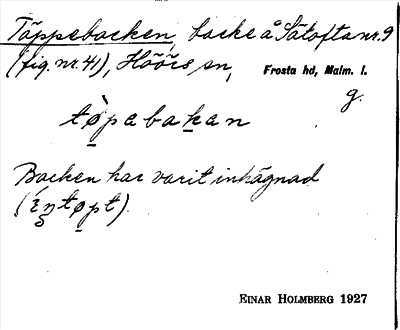 Täppebacken, backe å Sätofta nr. 9
(fig. nr. 41), Höörs sn, Frosta hd, Malm. l.
g.
tø̀pabakan
Backen har varit inhägnad
(íntøpt).
EINAR HOLMBERG 1927